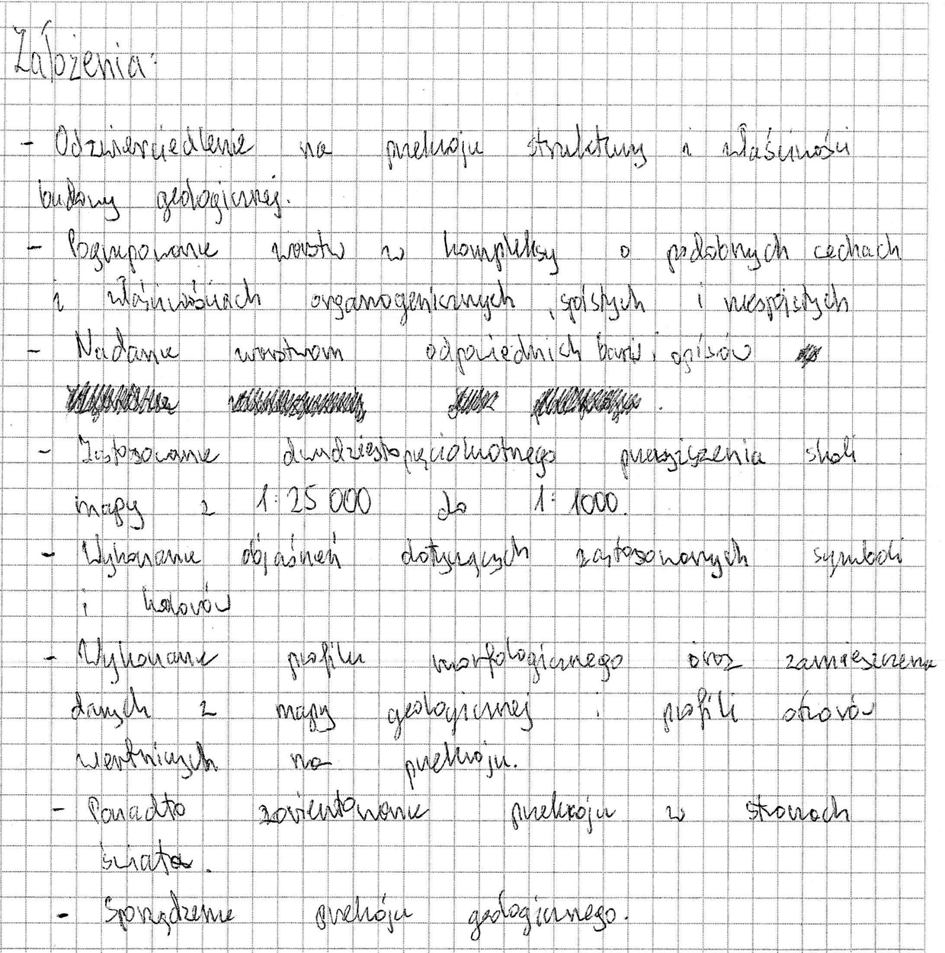 Założenia:
- Odzwierciedlenie na przekroju struktury i właściwości
budowy geologicznej.
- Pogrupowanie warstw w kompleksy o podobnych cechach
i właściwościach organogenicznych, spoistych i niespoistych
- Nadanie warstwom odpowiednich barw i opisów
- Zastosowanie dwudziestopięciokrotnego przewyższenia skali
mapy z 1:25 000 do 1:1000.
- Wykonanie objaśnień dotyczących zastosowanych symboli
i kolorów
- Wykonanie profilu morfologicznego oraz zamieszczenie
danych z mapy geologicznej i profili otworów
wiertniczych na przekroju.
- Ponadto zorientowanie przekroju w stronach
świata.
- Sporządzenie przekroju geologicznego.